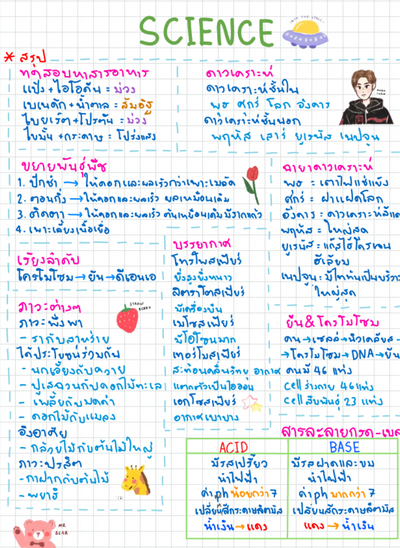 SCIENCE
* สรุป
ทดสอบหาสารอาหาร
แป้ง+ไอโอดีน = ม่วง
เบเนดิก+น้ำตาล = ส้มอิฐ
ไบยูเรต+โปรตีน = ม่วง
ไขมัน +กระดาษ = โปร่งแสง
ดาวเคราะห์
ดาวเคราะห์ชั้นใน
พุธ ศุกร์ โลก อังคาร
ดาวเคราะห์ชั้นนอก
พฤหัส เสาร์ ยูเรนัส เนปจูน
ขยายพันธุ์พืช
1. ปักชำ → ให้ดอกและผลเร็วกว่าเพาะเมล็ด
2. ตอนกิ่ง → ให้ดอกและผลเร็ว ผลเหมือนเดิม
3. ติดตา → ให้ดอกและผลเร็ว ต้นเหมือนเดิม มีรากแก้ว
4. เพาะเลี้ยงเนื้อเยื่อ
ฉายาดาวเคราะห์
พุธ = เตาไฟแช่แข็ง
ศุกร์ = ฝาแฝดโลก
อังคาร = ดาวเคราะห์สีแดง
พฤหัส = ใหญ่สุด
ยูเรนัส = แก๊สไฮโดรเจน
ฮีเลียม
ใหญ่สุด
เรียงลำดับ
โครโมโซม → ยีน → ดีเอนเอ
บรรยากาศ
โทรโพสเฟียร์
ยิ่งสูงยิ่งหนาว
สตราโตสเฟียร์
มีเครื่องบิน
เมโซสเฟียร์
มีโอโซนมาก
เทอร์โมสเฟียร์
สะท้อนคลื่นวิทยุ อากาศ
แตกตัวเป็นไอออน
เอกโซสเฟียร์
อากาศเบาบาง
ภาวะต่างๆ
ภาวะพึ่งพา
- รากับสาหร่าย
ได้ประโยชน์ร่วมกัน
- นกเอี้ยงกับควาย
- ปูเสฉวนกับดอกไม้ทะเล
- เพลี้ยกับมดดำ
- ดอกไม้กับแมลง
อิงอาศัย
- กล้วยไม้กับต้นไม้ใหญ่
ภาวะปรสิต
- กาฝากกับต้นไม้
- พยาธิ
ยีน & โครโมโซม
คน → เซลล์ → นิวเคลียส -
→ โครโมโซม → DNA → ยีน
คนมี 46 แท่ง
Cell ร่างกาย 46 แท่ง
Cell สืบพันธุ์ 23 แท่ง
สารละลายกรด-เบส
ACID
มีรสเปรี้ยว
นำไฟฟ้า
ค่าph น้อยกว่า7
เปลี่ยนสีกระดาษลิตมัส
น้ำเงิน → แดง
BASE
มีรสฝาดและขม
นำไฟฟ้า
ค่าph มากกว่า7
เปลี่ยนสีกระดาษลิตมัส
แดง → น้ำเงิน
MR.
BEAR